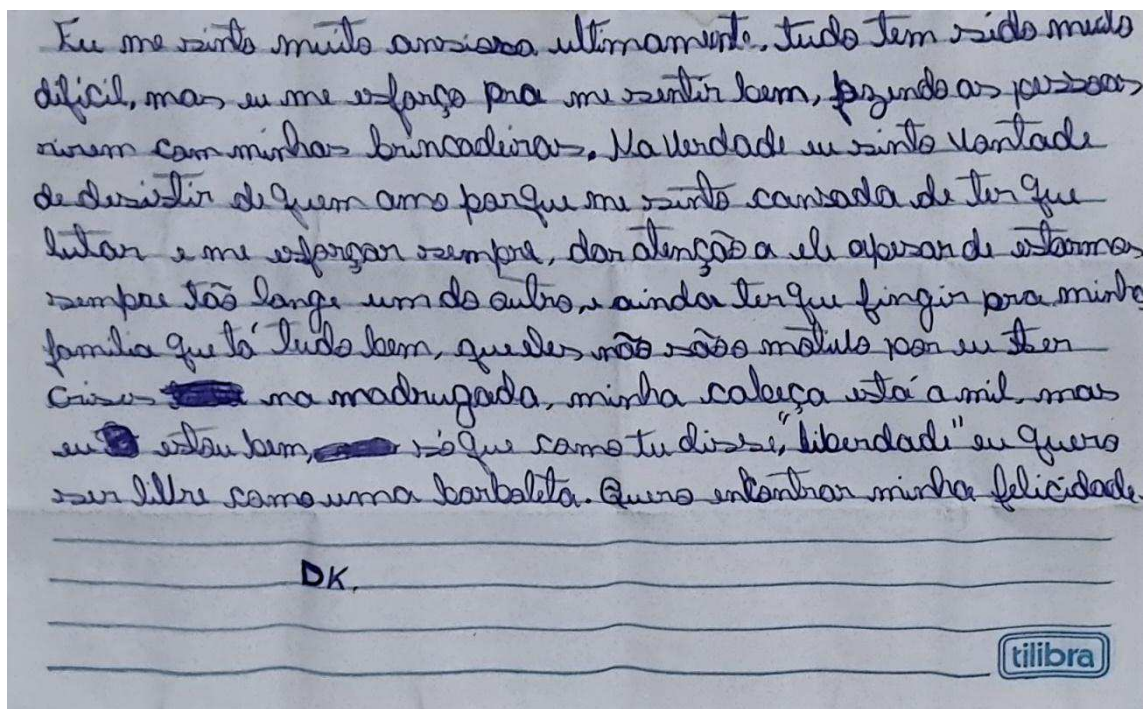 Eu me sinto muito ansiosa ultimamente, tudo tem sido muito
dificil, mas eu me esforço pra me sentir bem, fazendo as pessoas
rirem com minhas brincadeiras. Na verdade eu sinto vontade
de desistir de quem amo porque me sinto cansada de ter que
lutar e me esforçar sempre, dar atenção a ele apesar de estarmos
sempre tão longe um do outro, e ainda ter que fingir pra minha
familia que tá tudo bem, que eles não são motivo por eu ter
crises na madrugada, minha cabeça está a mil, mas
eu estou bem, só que como tu disse, "liberdade" eu quero
ser livre como uma borboleta. Quero encontrar minha felicidade.
DK.
tilibra